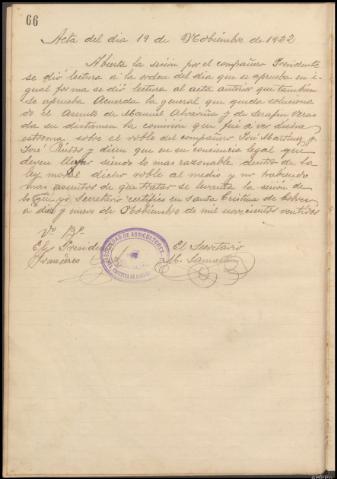 66
Acta del dia 19 de Nobiembre de 1922
Abierta la sesion por el compañero Presidente
se dió lectura a la orden del dia que se aprueba en i-
gual forma se dió lectura al acta anterior que tambien
se aprueba Acuerda la general que queda soluciona
do el Asunto de Manuel Alvariño y de Serafin Veras
da su dictamen la comision que fué a ver dicha
estrema sobre el roble del compañero José Martinez y
José y dicen que en su conciencia legal que
deven siendo lo mas razonable dentro de la
ley moral dicho roble al medio y no habiendo
mas asuntos de que tratar se levanta la sesion de
lo que yo Secretario certifico en Santa Cristina de
a diez y nueve de Nobiembre de mil novecientos veintidos
Vº Bº
El Presidente El Secretario
Francisco M.
SOCIEDAD DE AGRICULTORES